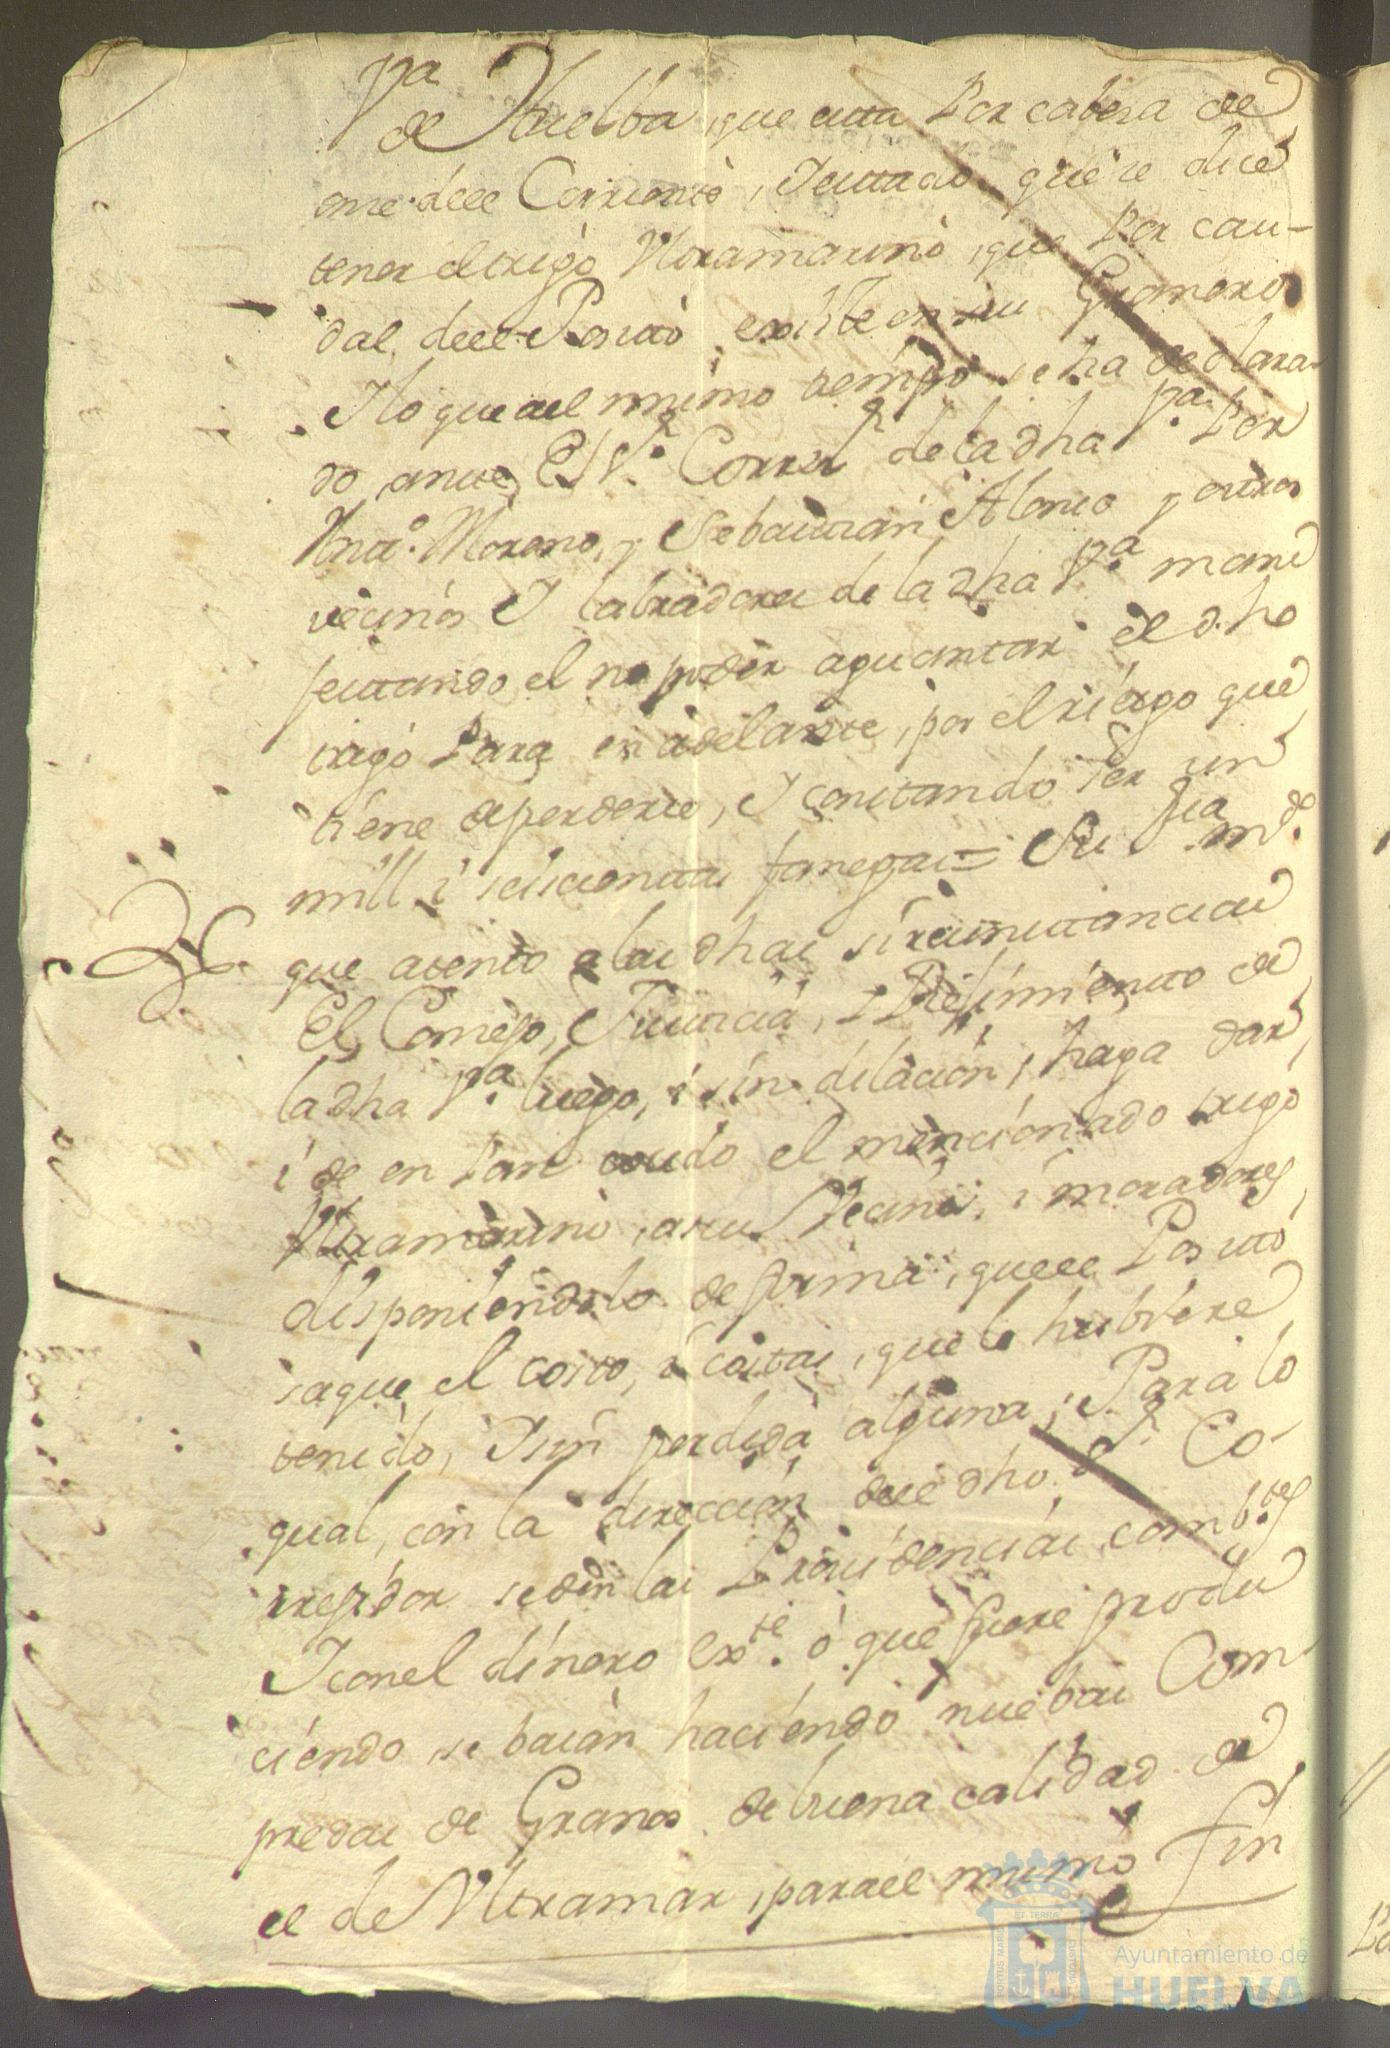 Vª
de Huelba, que esta Por cabesa de
ome deel Corriente, Iestado que se dice
tener el trigo Vltramarino, que Por cau-
dal deel Posito existe en su Graneros
Ilo que ael mismo tiempo se ha declara-
do, ante, El Sr. Correxr. de la dha Vª. Por
Anto. Moreno, y Sebastian Alonso y otros
vecinos I labradores de la dha Vª mani
festando el no poder aguantar el dho
trigo Para en adelante, por el riesgo que
tiene de perderse, I constando ser un
mill i seiscientas fanegas = Su Sria. mdo.
que atento a las dhas sircunstancias
El Consejo, Justicia, i Resimiento de
la dha Vª. luego, i sin dilacion, haga dar,
i de en Pan cosido el mencionado trigo
Vltramarino, a sus Vecinos, i moradores,
disponiendolo de forma, queel Posito
saque el costo, i costas, que le hubiere
tenido, Isin perdida alguna; Para lo
qual, con la direccion deel dho Sr. Co-
rrexidor se den las Providencias combtes
Iconel dinero exte. ó que fuere produ
ciendo se baian haciendo nuebas Com-
predas de Granos de buena calidad de
el de Vltramar, parael mismo fin
Ayuntamiento de
HUELVA